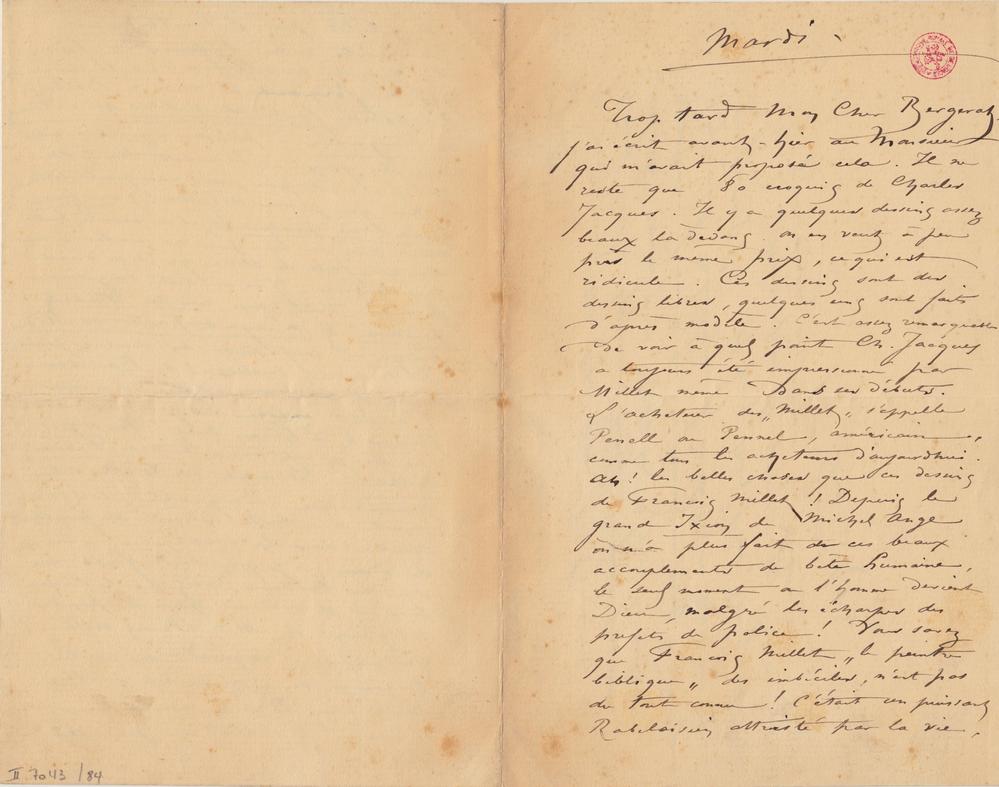 Mardi -
Trop tard Mon Cher Bergerat,
j'ai écrit avant-hier au Monsieur
qui m'avait proposé cela. Il ne
reste que 80 croquis de Charles
Jacques. Il y a quelques dessins assez
beaux là dedans. on en veut à peu
près le même prix, ce qui est
ridicule. Ces dessins sont des
dessins libres, quelques uns sont faits
d'après modèle. C'est assez remarquable
de voir à quel point Ch. Jacques
a toujours été impressionné par
Millet même Dans ses débuts.
L'acheteur des „Millet„ s'appelle
Penell ou Pennel, américain,
comme tous les acheteurs d'aujourdhui.
Ah! les belles choses que ces dessins
de François Millet! Depuis le
grand Ixion de Michel Ange
on n'a plus fait de ces beaux
accouplements de bête humaine,
le seul moment où l'homme devient
Dieu, malgré les écharpes des
préfets de police! Vous savez
que François Millet „le peintre
biblique„ des imbéciles, n'est pas
du tout connu! C'était un puissant
Rabelaisien attristé par la vie,
II 7043 /84